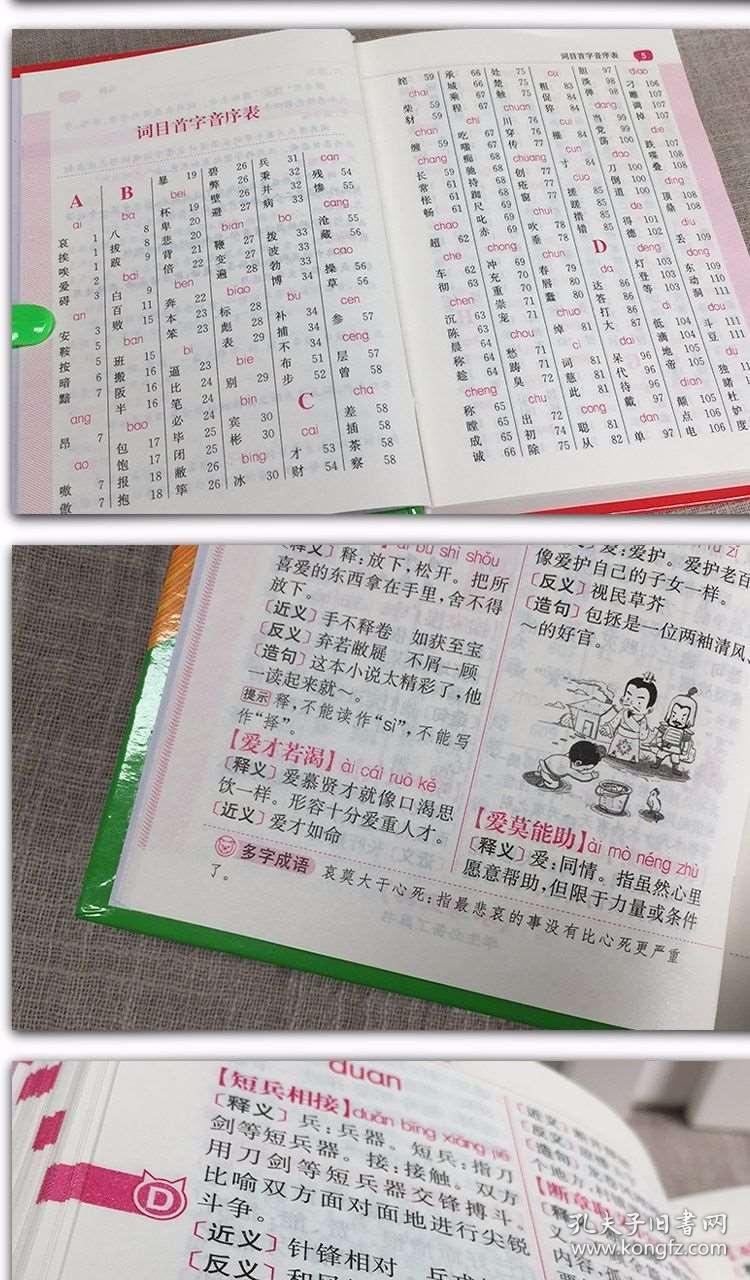 词目首字音序表
A
ai
哀 1
挨 1
唉 1
爱 2
碍 3
an
安 3
鞍 5
按 5
暗 6
黯 7
ang
昂 7
ao
嗷 7
傲 7
B
ba
八 8
拔 8
跋 9
bai
白 9
百 11
败 15
ban
班 15
搬 16
阪 16
半 16
bao
包 17
饱 17
报 18
抱 18
暴 19
bei
杯 19
卑 20
悲 20
背 21
倍 22
ben
奔 22
本 23
笨 23
bi
逼 23
比 24
笔 24
必 24
毕 25
闭 25
敝 26
筚 26
碧 26
弊 26
壁 26
避 27
bian
鞭 27
变 27
遍 28
biao
标 28
彪 28
表 29
bie
别 29
bin
宾 30
彬 30
bing
冰 30
兵 31
秉 32
并 32
病 33
bo
拨 33
波 33
勃 34
博 34
bu
补 34
捕 34
不 34
布 51
步 52
C
cai
才 53
财 54
can
残 54
惨 55
cang
沧 55
藏 56
cao
操 56
草 56
cen
参 57
ceng
层 57
曾 58
cha
差 58
插 58
茶 58
察 58
词目首字音序表 5
姹 59
chai
柴 59
豺 59
chan
缠 59
chang
长 59
常 61
怅 62
畅 62
chao
超 62
che
车 62
彻 63
chen
沉 63
陈 64
晨 64
称 64
趁 64
cheng
称 64
瞠 64
成 65
诚 66
承 66
城 66
乘 67
程 67
chi
吃 67
嗤 68
痴 68
驰 68
持 68
踟 68
尺 68
叱 69
赤 69
chong
冲 70
充 70
重 70
崇 70
宠 71
chou
愁 71
踌 71
臭 71
chu
出 72
初 74
除 75
处 75
楚 75
触 75
chuan
川 75
穿 75
传 77
chuang
创 77
疮 77
窗 77
chui
吹 77
垂 78
chun
春 79
唇 80
蠢 81
chuo
绰 81
ci
词 81
慈 81
此 81
cong
聪 81
从 82
cu
粗 83
促 84
猝 84
cui
摧 84
cun
寸 84
cuo
搓 85
蹉 85
措 85
错 85
D
da
达 85
答 86
打 86
大 87
dai
呆 94
代 97
待 97
戴 97
dan
单 97
胆 97
淡 98
弹 98
dang
当 98
党 99
荡 100
dao
刀 100
倒 100
道 100
de
得 101
德 102
deng
灯 102
登 103
等 103
di
低 103
滴 104
地 104
帝 105
dian
颠 105
点 106
电 106
diao
刁 106
雕 107
调 107
掉 107
die
跌 107
喋 108
叠 108
ding
顶 108
鼎 108
diu
丢 109
dong
东 109
动 109
洞 111
dou
斗 111
豆 111
du
独
睹
杜
妒
度
ài bù shì shǒu
〔释义〕释:放下,松开。把所
喜爱的东西拿在手里,舍不得
放下。
〔近义〕手不释卷 如获至宝
〔反义〕弃若敝屣 不屑一顾
〔造句〕这本小说太精彩了,他
一读起来就～。
提示 释,不能读作“sì”,不能写
作“择”。
【爱才若渴】ài cái ruò kě
〔释义〕爱慕贤才就像口渴思
饮一样。形容十分爱重人才。
〔近义〕爱才如命
爱:爱护。爱护老百
像爱护自己的子女一样。
〔反义〕视民草芥
〔造句〕包拯是一位两袖清风、
～的好官。
【爱莫能助】ài mò néng zhù
〔释义〕爱:同情。指虽然心里
愿意帮助,但限于力量或条件
多字成语 哀莫大于心死:指最悲哀的事没有比心死更严重
了。
duan
【短兵相接】duǎn bīng xiāng jiē
〔释义〕兵:兵器。短兵:指刀
剑等短兵器。接:接触。双方
用刀剑等短兵器交锋搏斗。
比喻双方面对面地进行尖锐
斗争。
〔近义〕针锋相对
〔反义〕
D
〔近义〕
〔反义〕
〔造句〕
个地方,
【断章取
〔释
义
内容,
孔夫子旧书网
www.kongfz.com